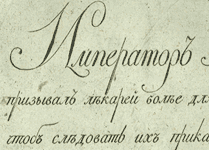 Императоръ
призывалъ лѣкарей болѣе для
чтобъ слѣдовать ихъ прика